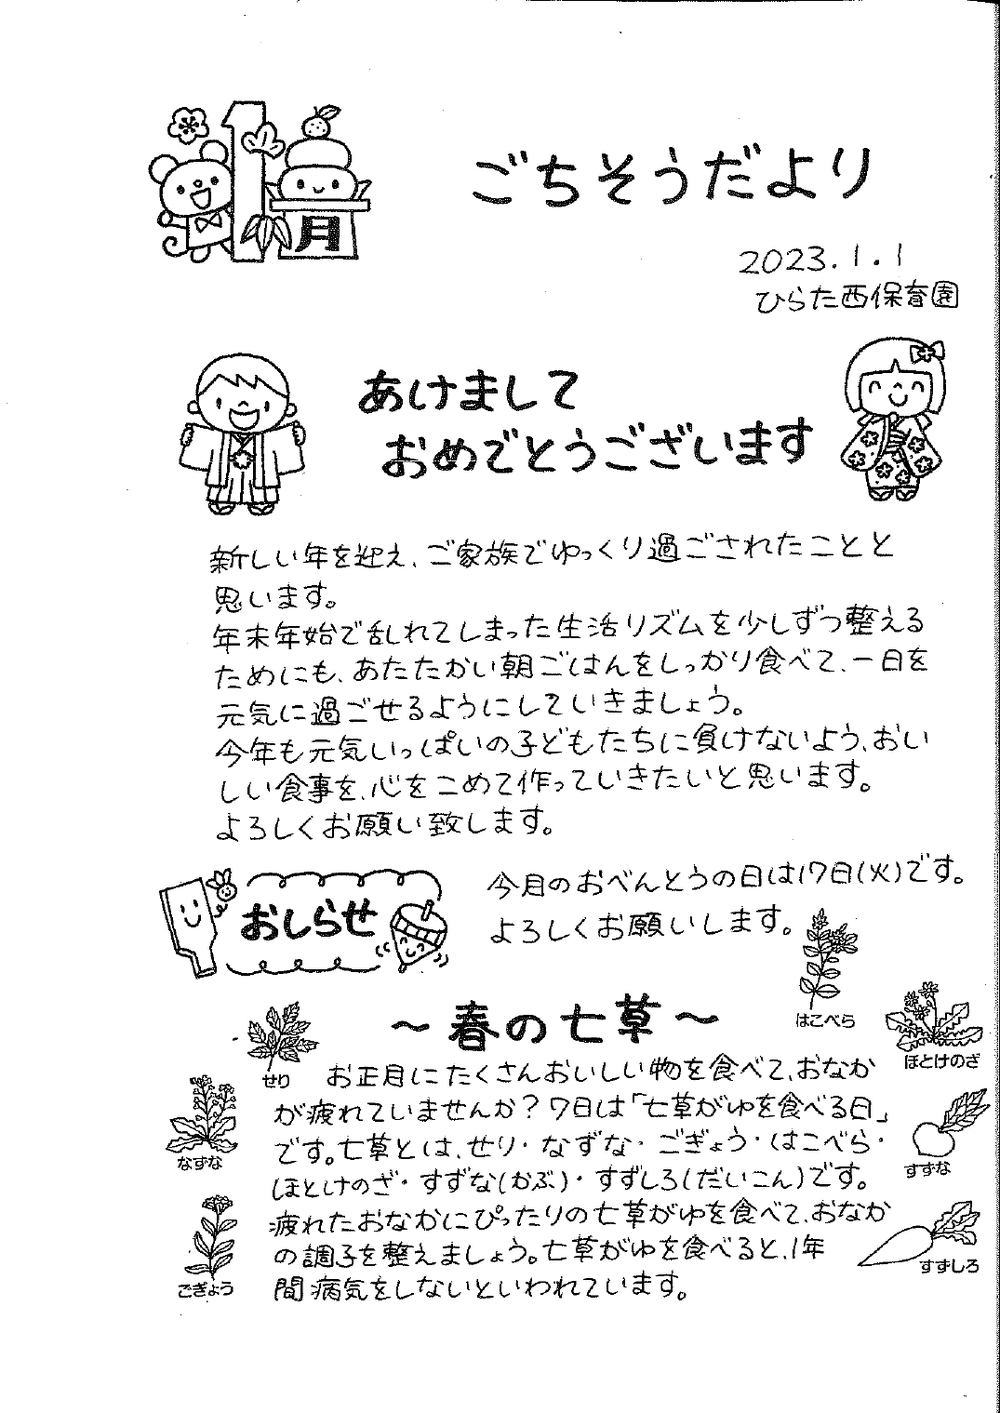 1月
ごちそうだより
2023.1.1
ひらた西保育園
あけまして
おめでとうございます
新しい年を迎え、ご家族でゆっくり過ごされたことと
思います。
年末年始で乱れてしまった生活リズムを少しずつ整える
ためにも、あたたかい朝ごはんをしっかり食べて、一日を
元気に過ごせるようにしていきましょう。
今年も元気いっぱいの子どもたちに負けないよう、おい
しい食事を、心をこめて作っていきたいと思います。
よろしくお願い致します。
おしらせ
今月のおべんとうの日は17日(火)です。
よろしくお願いします。
はこべら
ほとけのざ
～春の七草～
せり
お正月にたくさんおいしい物を食べて、おなか
が疲れていませんか？7日は「七草がゆを食べる日」
です。七草とは、せり・なずな・ごぎょう・はこべら・
ほとけのざ・すずな(かぶ)・すずしろ(だいこん)です。
疲れたおなかにぴったりの七草がゆを食べて、おなか
の調子を整えましょう。七草がゆを食べると、1年
間病気をしないといわれています。
なずな
すずな
ごぎょう
すずしろ